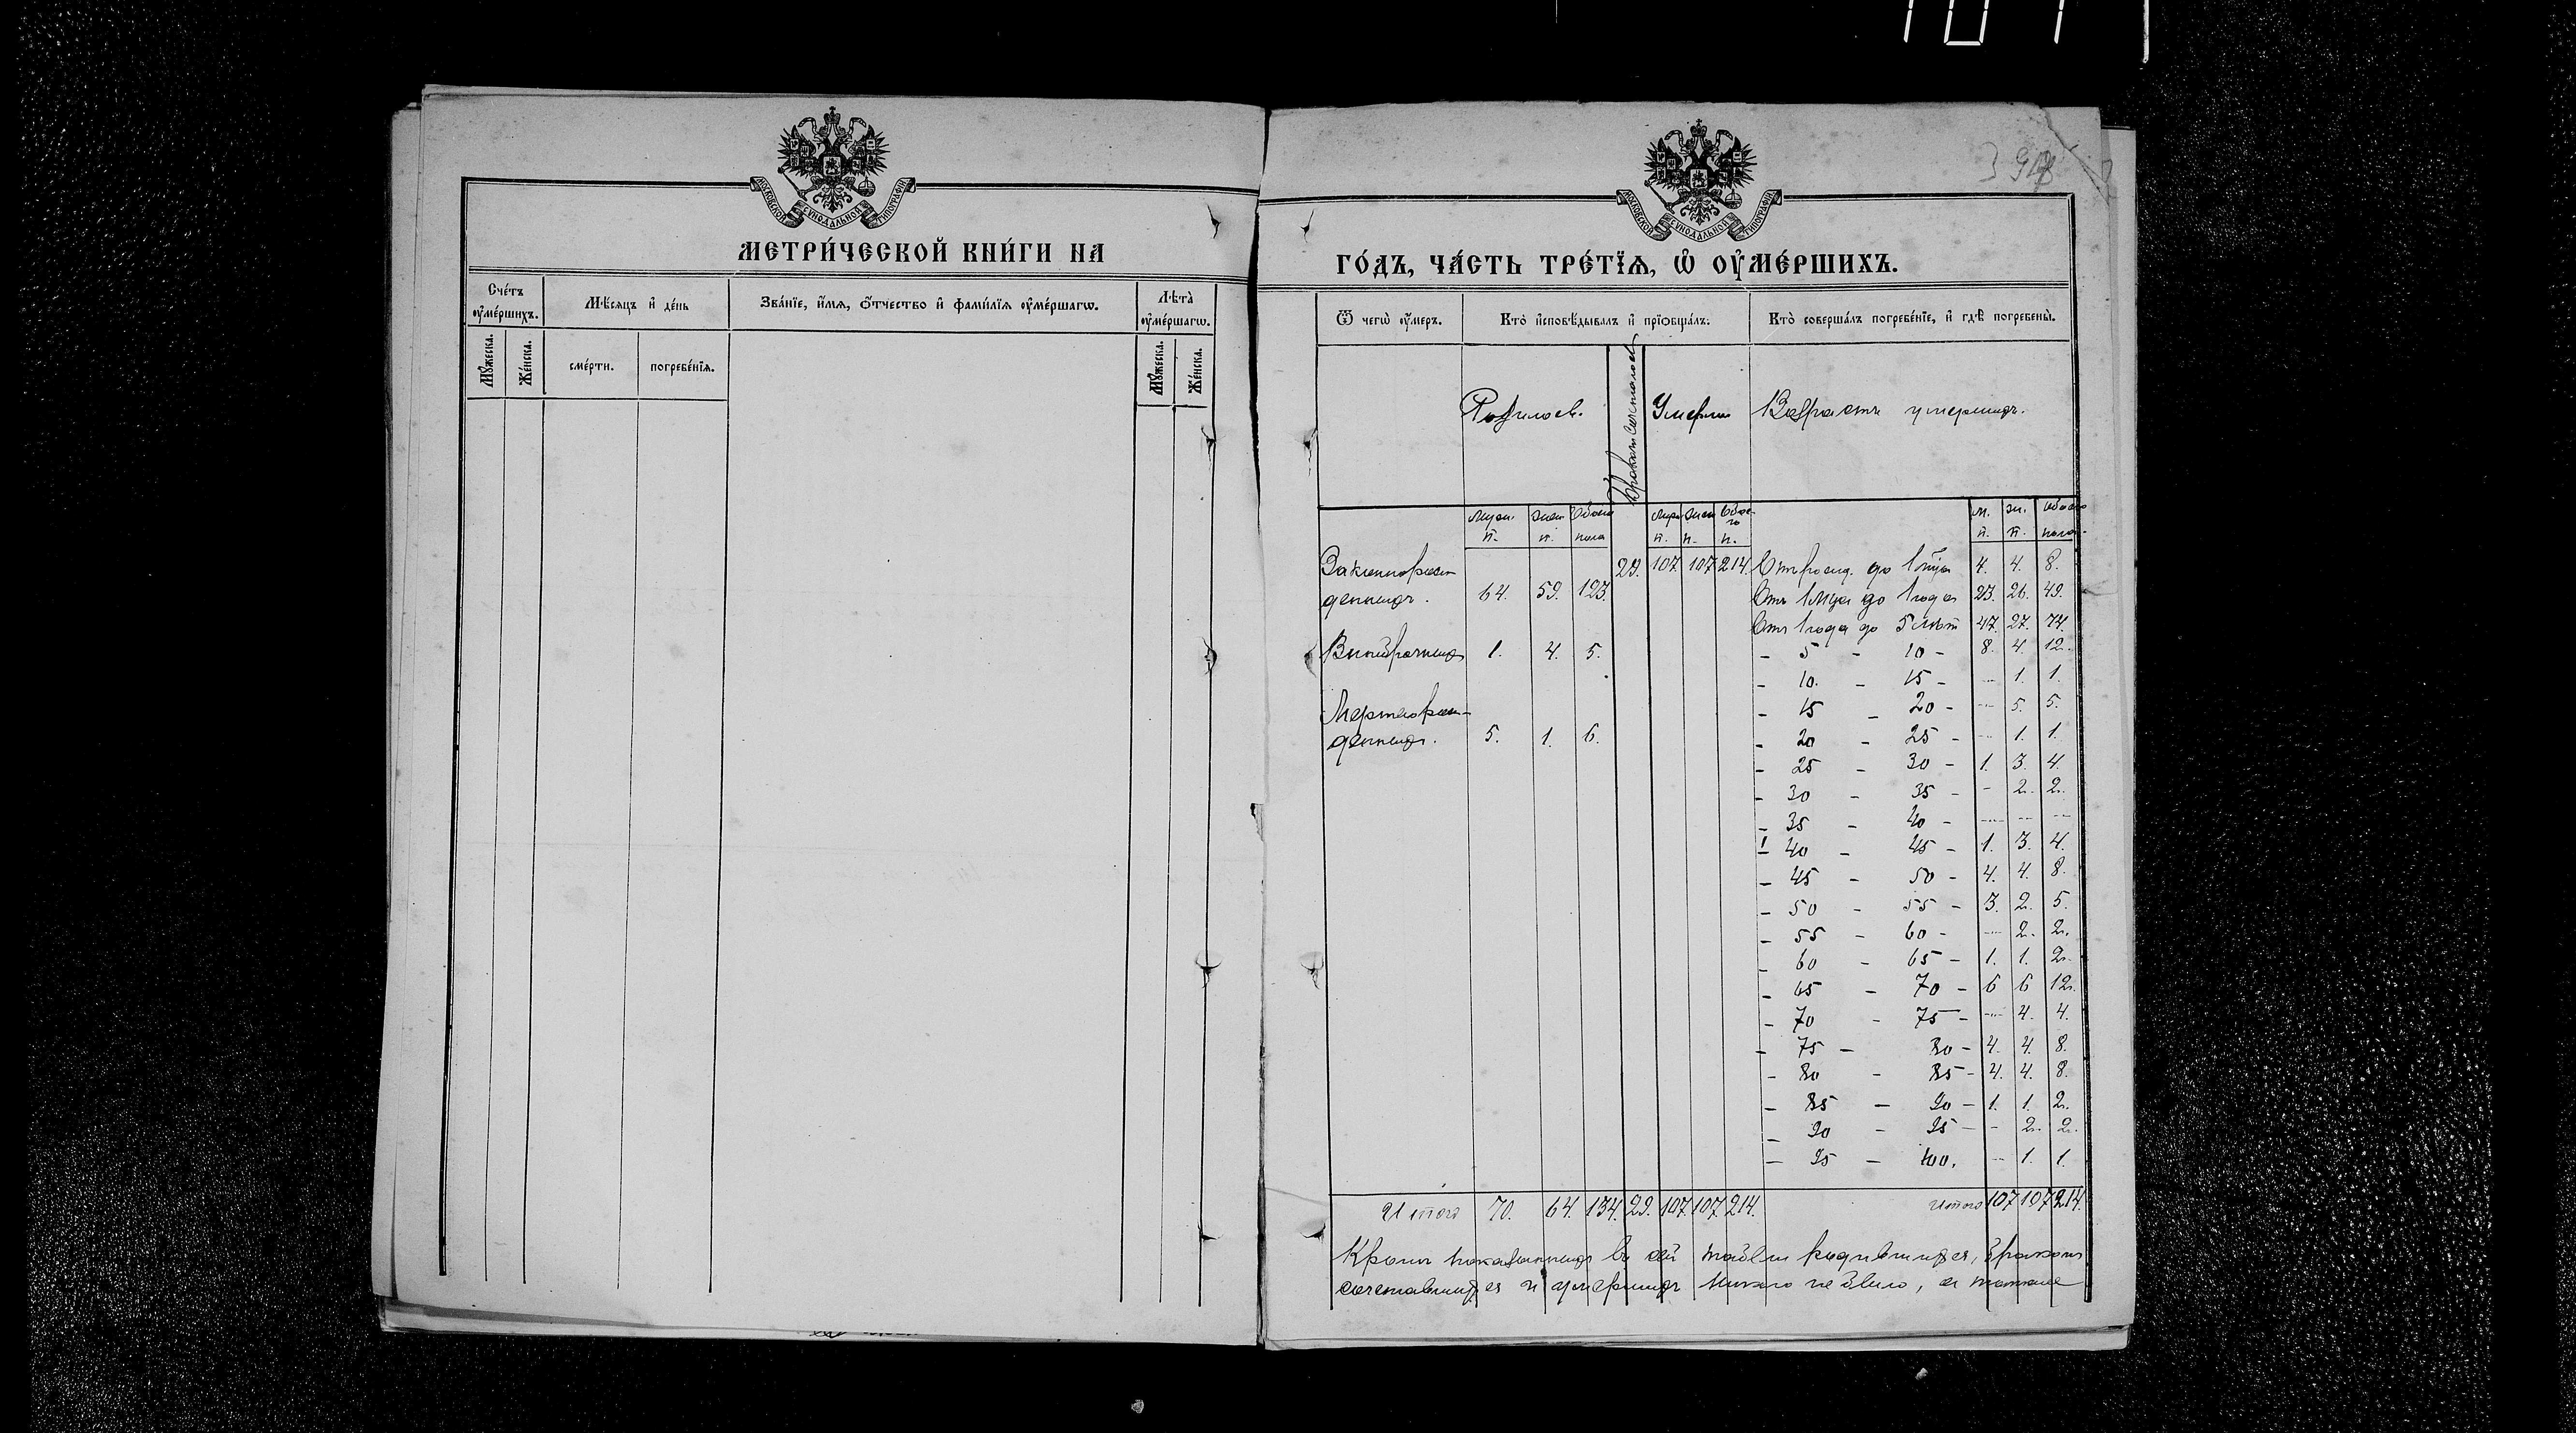 МОСКОВСКОЙ СѴНОДАЛЬНОЙ ТИПОГРАФІИ
МЕТРИ́ЧЕСКОЙ КНИ́ГИ НА
Сче́тъ ᲂу҆ме́ршихъ.
Мѣ́сяцъ и҆ де́нь
Зва́нїе, и҆́мѧ, ѻ҆́тчество и҆ фами́лїѧ ᲂу҆ме́ршагѡ.
Лѣ́та ᲂу҆ме́ршагѡ.
Мꙋ́жеска.
Же́нска.
сме́рти.
погребе́нїѧ.
Мꙋ́жеска.
Же́нска.
МОСКОВСКОЙ СѴНОДАЛЬНОЙ ТИПОГРАФІИ
ГО́ДЪ, ЧА́СТЬ ТРЕ́ТЇѦ, Ѡ҆ ОУ҆МЕ́РШИХЪ.
Ѿ чегѡ̀ ᲂу҆́меръ.
Кто̀ и҆сповѣ́дывалъ и҆ прїѡбща́лъ.
Кто̀ соверша́лъ погребе́нїе, и҆ гдѣ̀ погребены̀.
Родилось.
Бракомъ сочеталось
Умерли
Возрастъ умершихъ.
Муж. п. Жен. п. Обоего пола
Муж. п. Жен. п. Обоего п.
М. п. Ж. п. Обоего пола
Законнорожденныхъ. 64. 59. 123.
29. 107. 107. 214.
Внѣбрачныхъ 1. 4. 5.
Мертворожденныхъ. 5. 1. 6.
Отъ рожд. до 1 мца 4. 4. 8.
Отъ 1 мца до 1 года 23. 26. 49.
Отъ 1 года до 5 лѣтъ 47. 27. 74.
- 5 - 10 - 8. 4. 12.
- 10. - 15 - - 1. 1.
- 15 - 20 - - 5. 5.
- 20 - 25 - - 1. 1.
- 25 - 30 - 1. 3. 4.
- 30 - 35 - - 2. 2.
- 35 - 40 - - - -
- 40 - 45 - 1. 3. 4.
- 45 - 50 - 4. 4. 8.
- 50 - 55 - 3. 2. 5.
- 55 - 60 - - 2. 2.
- 60 - 65 - 1. 1. 2.
- 65 - 70 - 6 6 12.
- 70 - 75 - - 4. 4.
- 75 - 80 - 4. 4. 8.
- 80 - 85 - 4. 4. 8.
- 85 - 90 - 1. 1. 2.
- 90 - 95 - - 2. 2.
- 95 - 100. - 1. 1.
Итого 70. 64. 134. 29. 107. 107. 214. Итого 107 107 214.
Кромѣ показанныхъ въ сей табели родившихся, бракомъ
сочетавшихся и умершихъ никого не было, а также